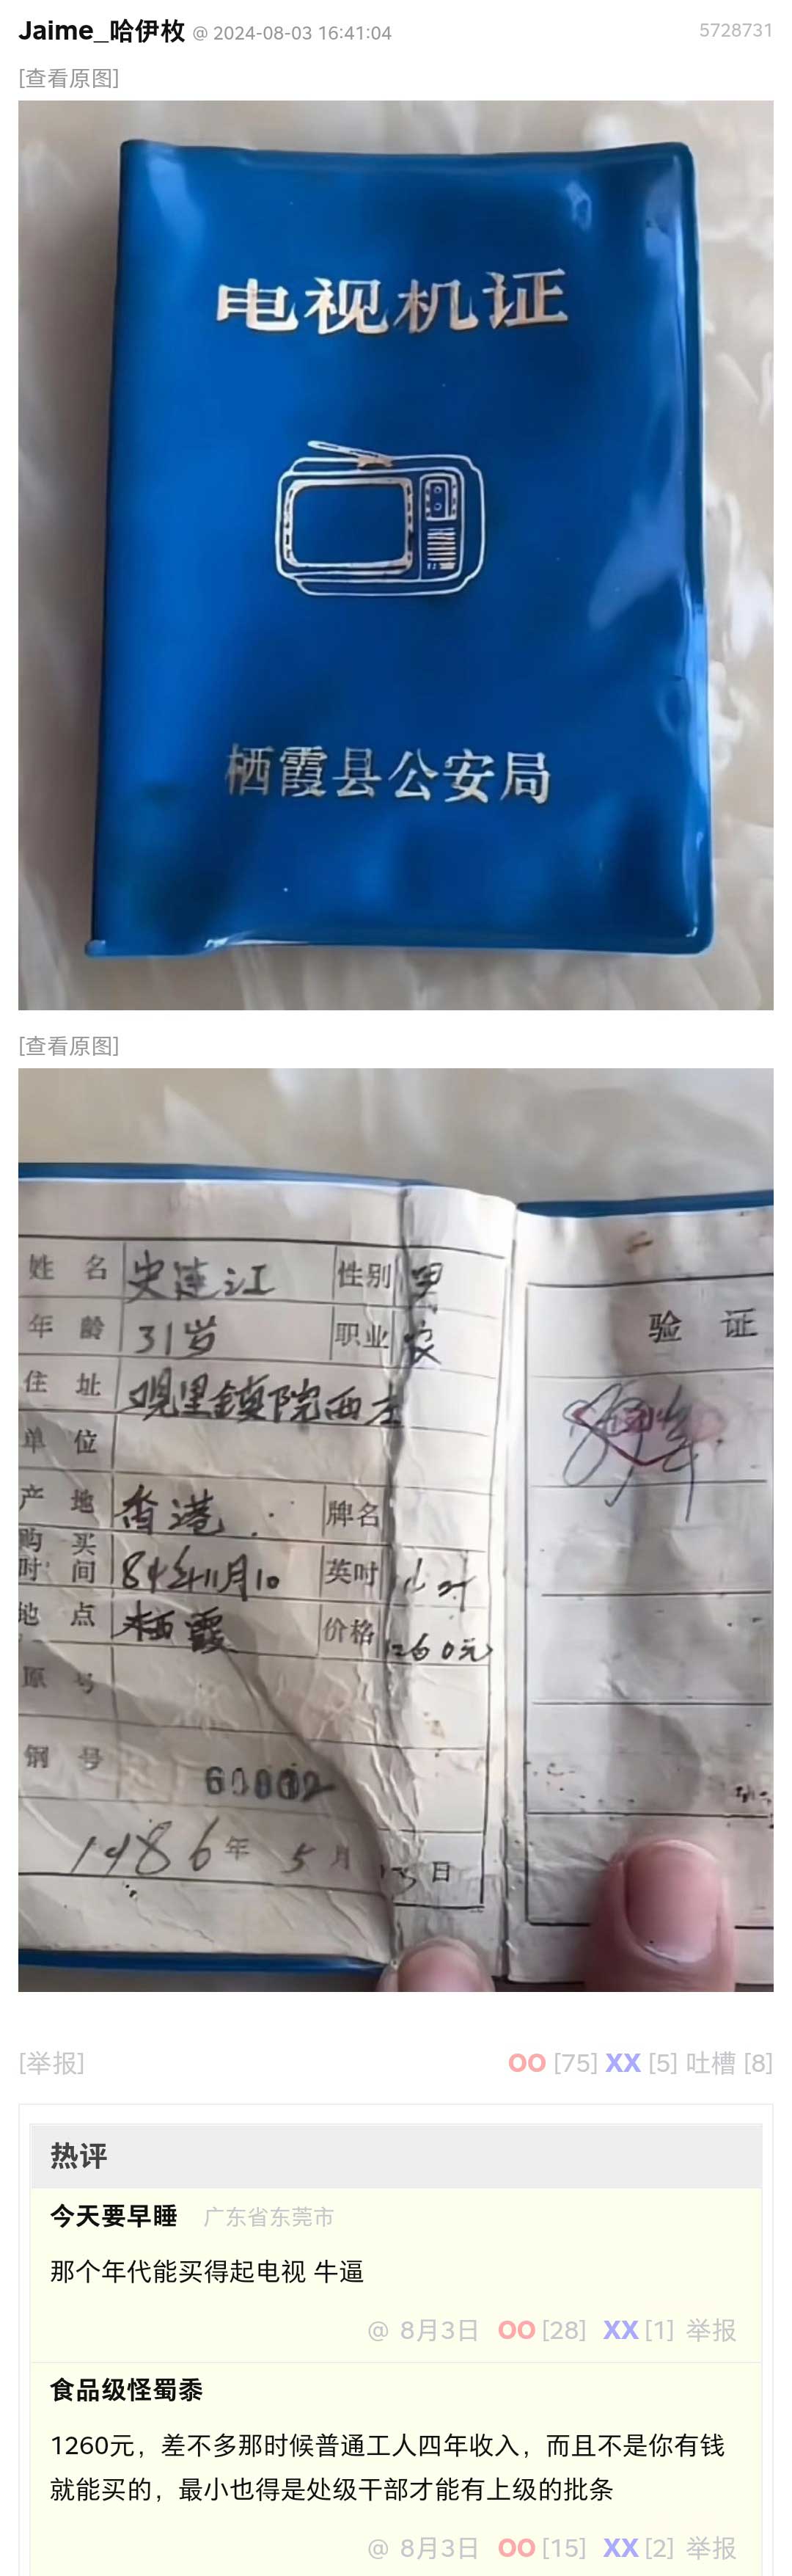 Jaime_哈伊枚 @ 2024-08-03 16:41:04 5728731
[查看原图]
电视机证
栖霞县公安局
[查看原图]
姓 名 史连江 性别 男
年 龄 31岁 职业 农
住 址 观里鎮院西
单 位
产 地 香港 牌名
购 买
时 间 84年11月10 英吋
地 点 栖霞 价格 1260元
原 号
钢 号
1986年 5月 13日
验 证
[举报] OO [75] XX [5] 吐槽 [8]
热评
今天要早睡 广东省东莞市
那个年代能买得起电视 牛逼
@ 8月3日 OO [28] XX [1] 举报
食品级怪蜀黍
1260元，差不多那时候普通工人四年收入，而且不是你有钱
就能买的，最小也得是处级干部才能有上级的批条
@ 8月3日 OO [15] XX [2] 举报